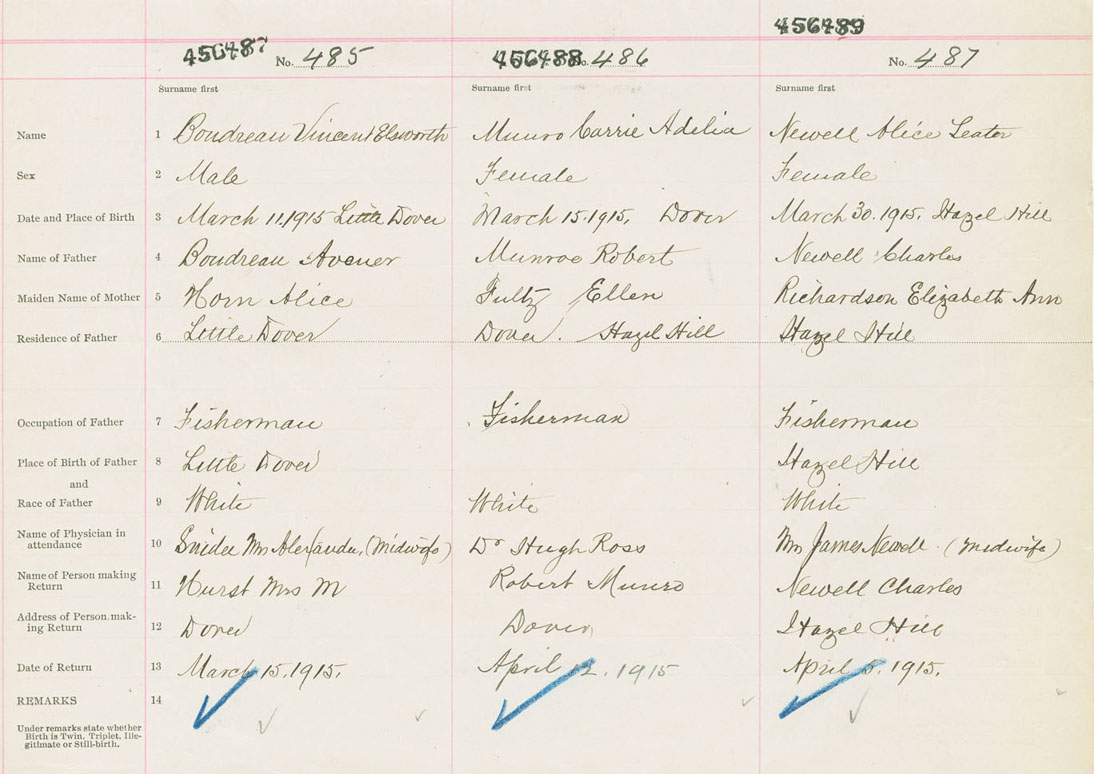 456489
456487 No. 485 456488 No. 486 No. 487
Surname first Surname first Surname first
Name 1 Boudreau Vincent Elsworth Munro Carrie Adelia Newell Alice Leator
Sex 2 Male Female Female
Date and Place of Birth 3 March 11, 1915 Little Dover March 15. 1915. Dover March 30. 1915. Hazel Hill
Name of Father 4 Boudreau Avener Munroe Robert Newell Charles
Maiden Name of Mother 5 Horn Alice Fultz Ellen Richardson Elizabeth Ann
Residence of Father 6 Little Dover Dover. Hazel Hill Hazel Hill
Occupation of Father 7 Fisherman Fisherman Fisherman
Place of Birth of Father 8 Little Dover Hazel Hill
and
Race of Father 9 White White White
Name of Physician in
attendance 10 Mrs Alexander, (Midwife) Dr Hugh Ross Mrs James Newell (Midwife)
Name of Person making
Return 11 Hurst Mrs M Robert Munro Newell Charles
Address of Person mak-
ing Return 12 Dover Dover Hazel Hill
Date of Return 13 March 15, 1915. April 12. 1915 April 5. 1915.
REMARKS 14
Under remarks state whether
Birth is Twin, Triplet, Ille-
gitimate or Still-birth.